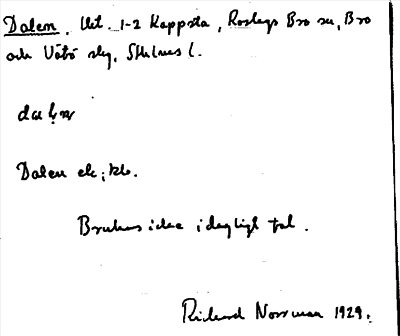 Dalen, Utt. 1-2 Kappsta, Roslags Bro sn, Bro
och Vätö slg, Sthlms l.
Dalen ek; kb.
Brukas icke i dagligt tal.
Richard Norrman 1929.